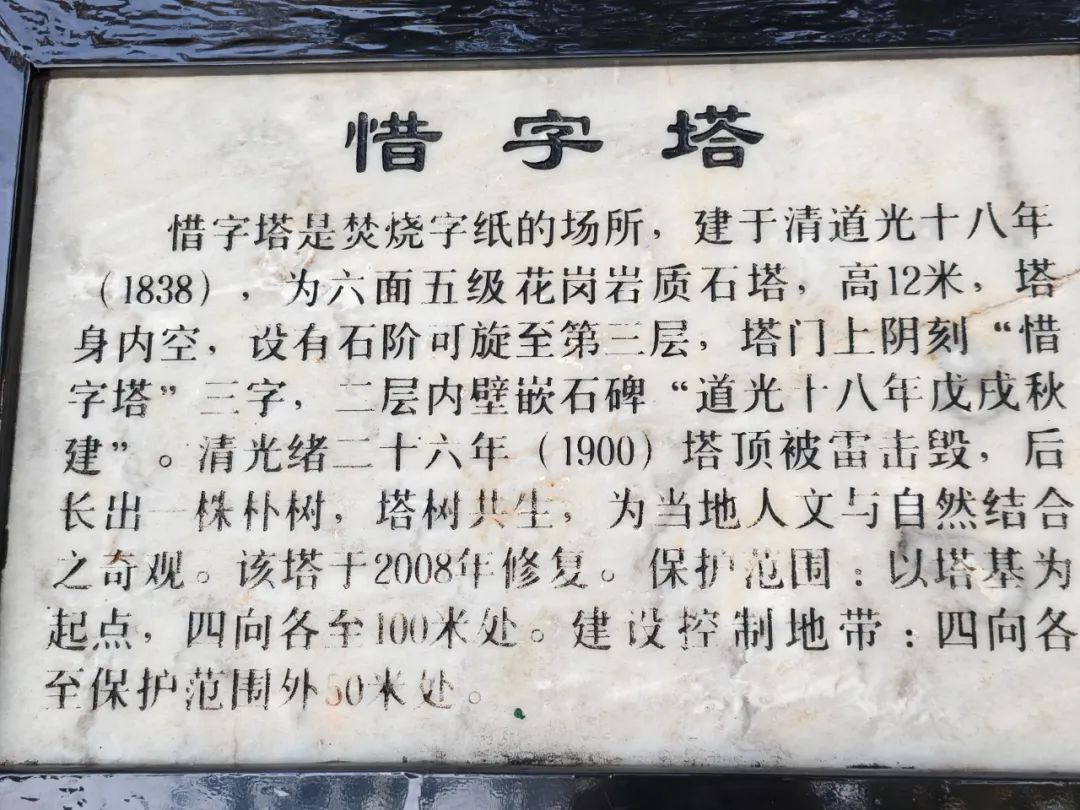 惜字塔
惜字塔是焚烧字纸的场所，建于清道光十八年
（1838），为六面五级花岗岩质石塔，高12米，塔
身内空，设有石阶可旋至第三层，塔门上阴刻“惜
字塔”三字，二层内壁嵌石碑“道光十八年戊戌秋
建”。清光绪二十六年（1900）塔顶被雷击毁，后
长出一株朴树，塔树共生，为当地人文与自然结合
之奇观。该塔于2008年修复。保护范围：以塔基为
起点，四向各至100米处。建设控制地带：四向各
至保护范围外50米处。